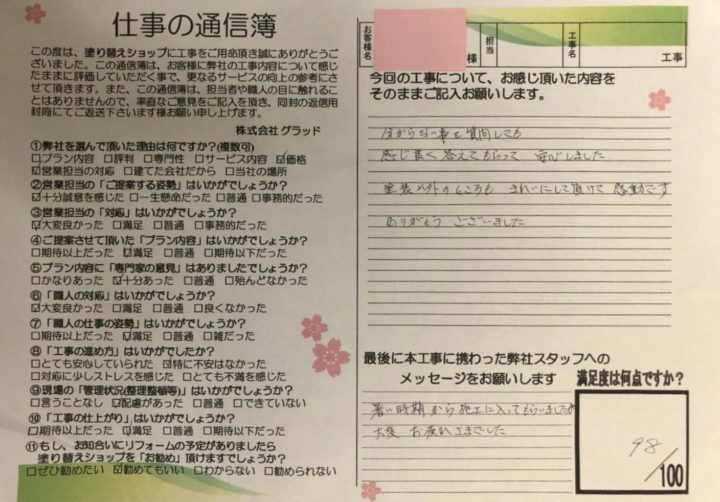 仕事の通信簿
この度は、塗り替えショップに工事をご用命頂き誠にありがとうご
ざいました。この通信簿は、お客様に弊社の工事内容について感じ
たままに評価していただく事で、更なるサービスの向上の参考にさ
せて頂きます。また、この通信簿は、担当者や職人の目に触れるこ
とはありませんので、率直なご意見をご記入を頂き、同封の返信用
封筒にてご返送下さいます様お願い申し上げます。
株式会社 グラッド
①弊社を選んで頂いた理由は何ですか?(複数可)
□プラン内容 □評判 □専門性 □サービス内容 ☑価格
☑営業担当の対応 □建てた会社だから □当社の場所
②営業担当の「ご提案する姿勢」はいかがでしょうか?
☑十分誠意を感じた □一生懸命だった □普通 □事務的だった
③営業担当の「対応」はいかがでしょうか?
☑大変良かった □満足 □普通 □事務的だった
④ご提案させて頂いた「プラン内容」はいかがでしょうか?
□期待以上だった ☑満足 □普通 □期待以下だった
⑤プラン内容に「専門家の意見」はありましたでしょうか?
□かなりあった ☑十分あった □普通 □殆んどなかった
⑥「職人の対応」はいかがでしょうか?
☑大変良かった □満足 □普通 □良くなかった
⑦「職人の仕事の姿勢」はいかがでしょうか?
□期待以上だった ☑満足 □普通 □雑だった
⑧「工事の進め方」はいかがでしたか?
□とても安心していられた ☑特に不安はなかった
□対応に少しストレスを感じた □とても不満を感じた
⑨現場の「管理状況(整理整頓等)」はいかがでしょうか?
□言うことなし ☑配慮があった □普通 □できていない
⑩「工事の仕上がり」はいかがでしょうか?
□期待以上だった ☑満足 □普通 □期待以下だった
⑪もし、お知合いにリフォームの予定がありましたら
塗り替えショップを「お勧め」頂けますでしょうか?
□ぜひ勧めたい ☑勧めてもいい □わからない □勧められない
お客様名 様 担当 工事名 工事
今回の工事について、お感じ頂いた内容を
そのままご記入お願いします。
分からない事を質問しても
感じ良く答えてもらって 安心しました
塗装以外のところも きれいにして頂けて 感動です
ありがとう ございました
最後に本工事に携わった弊社スタッフへの
メッセージをお願いします
暑い時期から施工に入ってもらいましたが
大変 お疲れさまでした
満足度は何点ですか?
98
/100